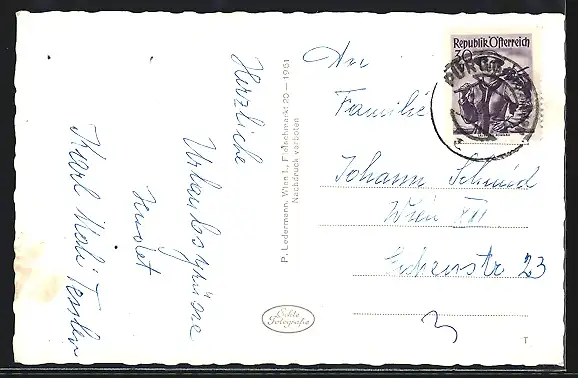 Herzliche
Urlaubsgrüsse
sendet
Karl
An
Familie
Johann Schmid
Wien XII
23
3
Republik Österreich
30
P. Ledermann, Wien I., Fleischmarkt 20 — 1961
Nachdruck verboten
Echte
Fotografie
T